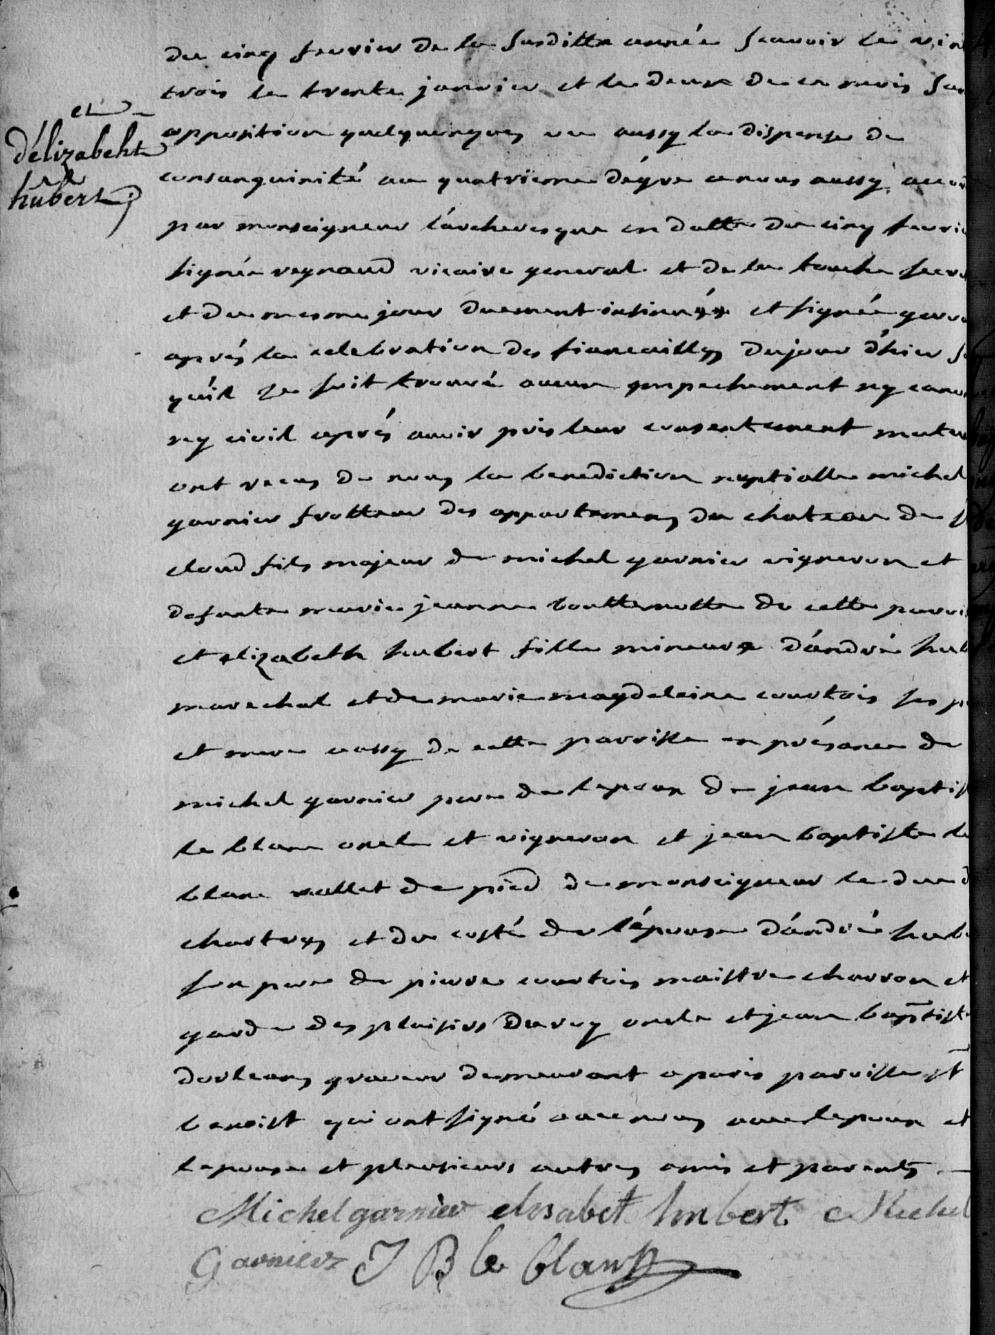 et
d'élizabeht
hubert
du cinq fevrier de la susditte année scavoir le vin
trois le trente janvier et le deux de ce mois san
opposition quelquonques vu aussy la dispense de
consanguinité au quatrieme dégre a nous aussy acco
par monseigneur l'archevesque en datte du cinq fevri
signée regnaud vicaire general et de la touche secr
et du mesme jour duement insinués et signée
aprés la celebration des fiancailles du jour d'hier s
qu'il se soit trouvé aucun empechement ny cano
ny civil aprés avoir pris leur consentement mutu
ont recus de nous la benediction nuptialle michel
garnier frotteur des appartemens du chateau de
cloud fils majeur de michel garnier vigneron et
defunte marie jeanne de cette paroi
et elizabeth hubert fille mineure d'andré hub
marechal et de marie magdelaine courtois ses p
et mere aussy de cette paroisse en présance de
michel garnier pere de lepoux de jean baptis
le blanc oncle et vigneron et jean baptiste le
blanc vallet de pied de monseigneur le duc d
chartres et du costé de l'épouse d'andré hub
son pere de pierre courtois maistre charron et
garde des plaisirs du roy oncle et jean baptist
dorleans graveur demeurant a paris paroisse st
benoist qui ont signé avec nous avec lepoux et
lepouse et plusieurs autres amis et parents
Michel garnier elisabet hubert Michel
Garnier J B le blanc